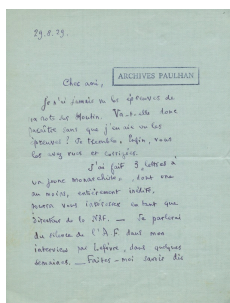 29.8.29.
Cher ami,
ARCHIVES PAULHAN
Je n'ai jamais vu les épreuves de
ma note sur Moulin. Va-t-elle donc
paraître sans que j'en aie vu les
épreuves ? Je tremble. Enfin, vous
les avez vues et corrigées.
J'ai fait 3 lettres à
un jeune monarchiste, dont une
au moins, entièrement inédite,
pourra vous intéresser en tant que
Directeur de la NRF. — Je parlerai
du silence de l'A.F. dans mon
interview par Lefèvre, dans quelques
semaines. — Faites-moi savoir dès